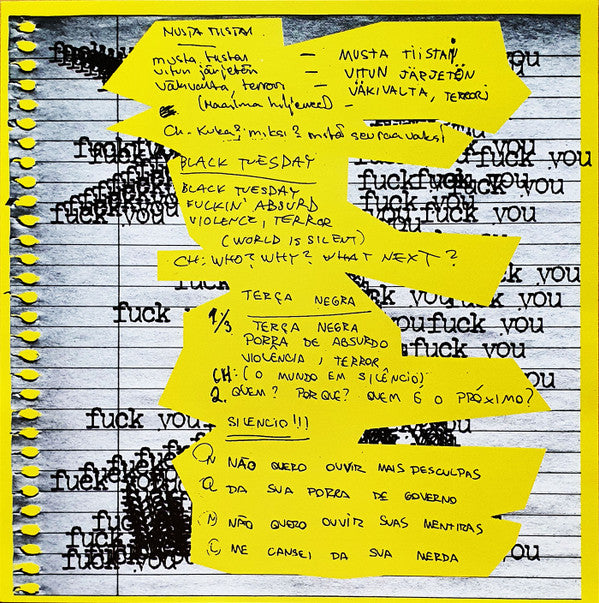 MUSTA TIISTAI
fuck you
musta tiistai – MUSTA TIISTAI
vitun järjetön – VITUN JÄRJETÖN
väkivalta, terrori VÄKIVALTA, TERRORI
(Maailma hiljenee) –
Ch. Kuka? miksi? mitä seuraavaksi
fuck you
BLACK TUESDAY
fuck you
BLACK TUESDAY
FUCKIN' ABSURD
fuck you
VIOLENCE, TERROR
fuck you
(WORLD IS SILENT)
CH: WHO? WHY? WHAT NEXT?
fuck you
TERÇA NEGRA
fuck you
1/3 TERÇA NEGRA
fuck you
PORRA DE ABSURDO
fuck you
VIOLÊNCIA, TERROR
CH: (O MUNDO EM SILÊNCIO)
2. QUEM? POR QUE? QUEM É O PRÓXIMO?
fuck you
SILENCIO!!!
NÃO QUERO OUVIR MAIS DESCULPAS
fuck you
DA SUA PORRA DE GOVERNO
fuck you
NÃO QUERO OUVIR SUAS MENTIRAS
fuck you
ME CANSEI DA SUA MERDA
fuck you